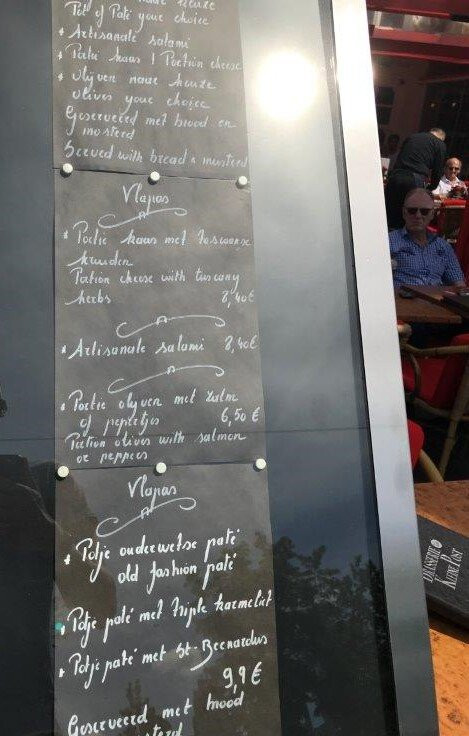 naar keuze
Pot of Paté your choice
* Artisanale salami
* Portie kaas / Portion cheese
* olijven naar keuze
olives your choice
Geserveerd met brood en
mosterd
Served with bread & musterd
Vlapas
* Portie kaas met Toscaanse
kruiden
Portion cheese with tuscany
herbs 8,40€
* Artisanale salami 8,40€
* Portie olijven met zalm
of pepertjes 6,50 €
Portion olives with salmon
or peppers
Vlapas
* Potje ouderwetse paté
old fashion paté
* Potje paté met Triple karmeliet
* Potje paté met St-Bernardus
9,9 €
Geserveerd met brood
BRASSERIE
KLEINE POST